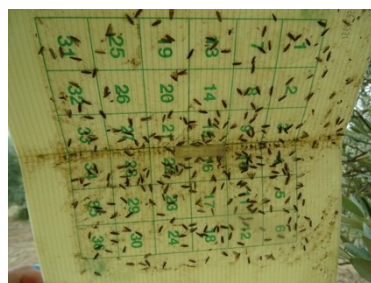 31 25 19 13 7 1
32 26 20 14 8 2
33 27 21 15 9
34 28 22 16
35 29 23 17 11 5
36 30 24 18 12 6